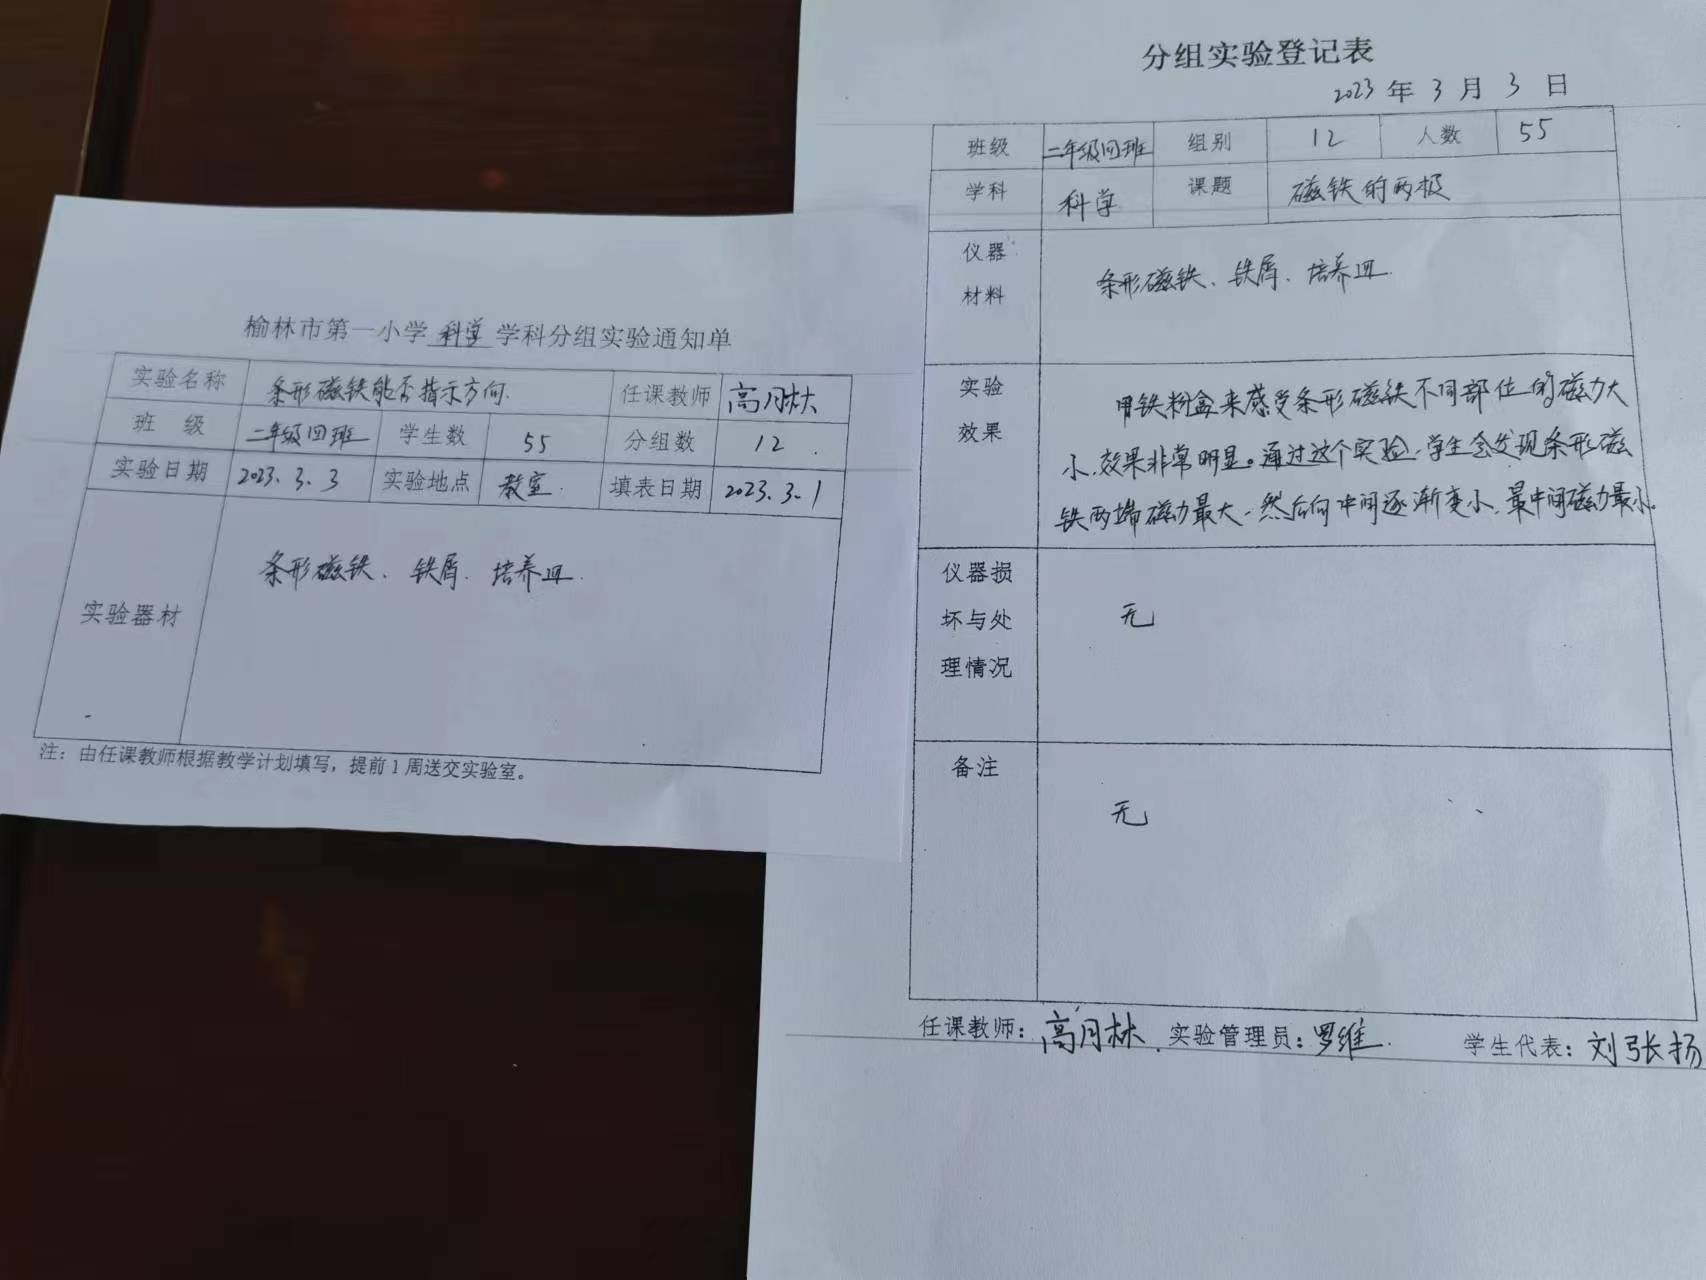 榆林市第一小学 科学 学科分组实验通知单
实验名称 条形磁铁能否指示方向. 任课教师 高月林
班 级 二年级四班 学生数 55 分组数 12.
实验日期 2023.3.3 实验地点 教室. 填表日期 2023.3.1
实验器材 条形磁铁、铁屑、培养皿.
注：由任课教师根据教学计划填写，提前1周送交实验室。
分组实验登记表
2023年3月3日
班级 二年级四班 组别 12 人数 55
学科 科学 课题 磁铁的两极
仪器
材料
条形磁铁、铁屑、培养皿.
实验
效果
用铁粉盒来感受条形磁铁不同部位的磁力大
小,效果非常明显。通过这个实验,学生会发现条形磁
铁两端磁力最大,然后向中间逐渐变小,最中间磁力最小。
仪器损
坏与处
理情况
无
备注
无
任课教师：高月林. 实验管理员：罗维. 学生代表：刘张扬